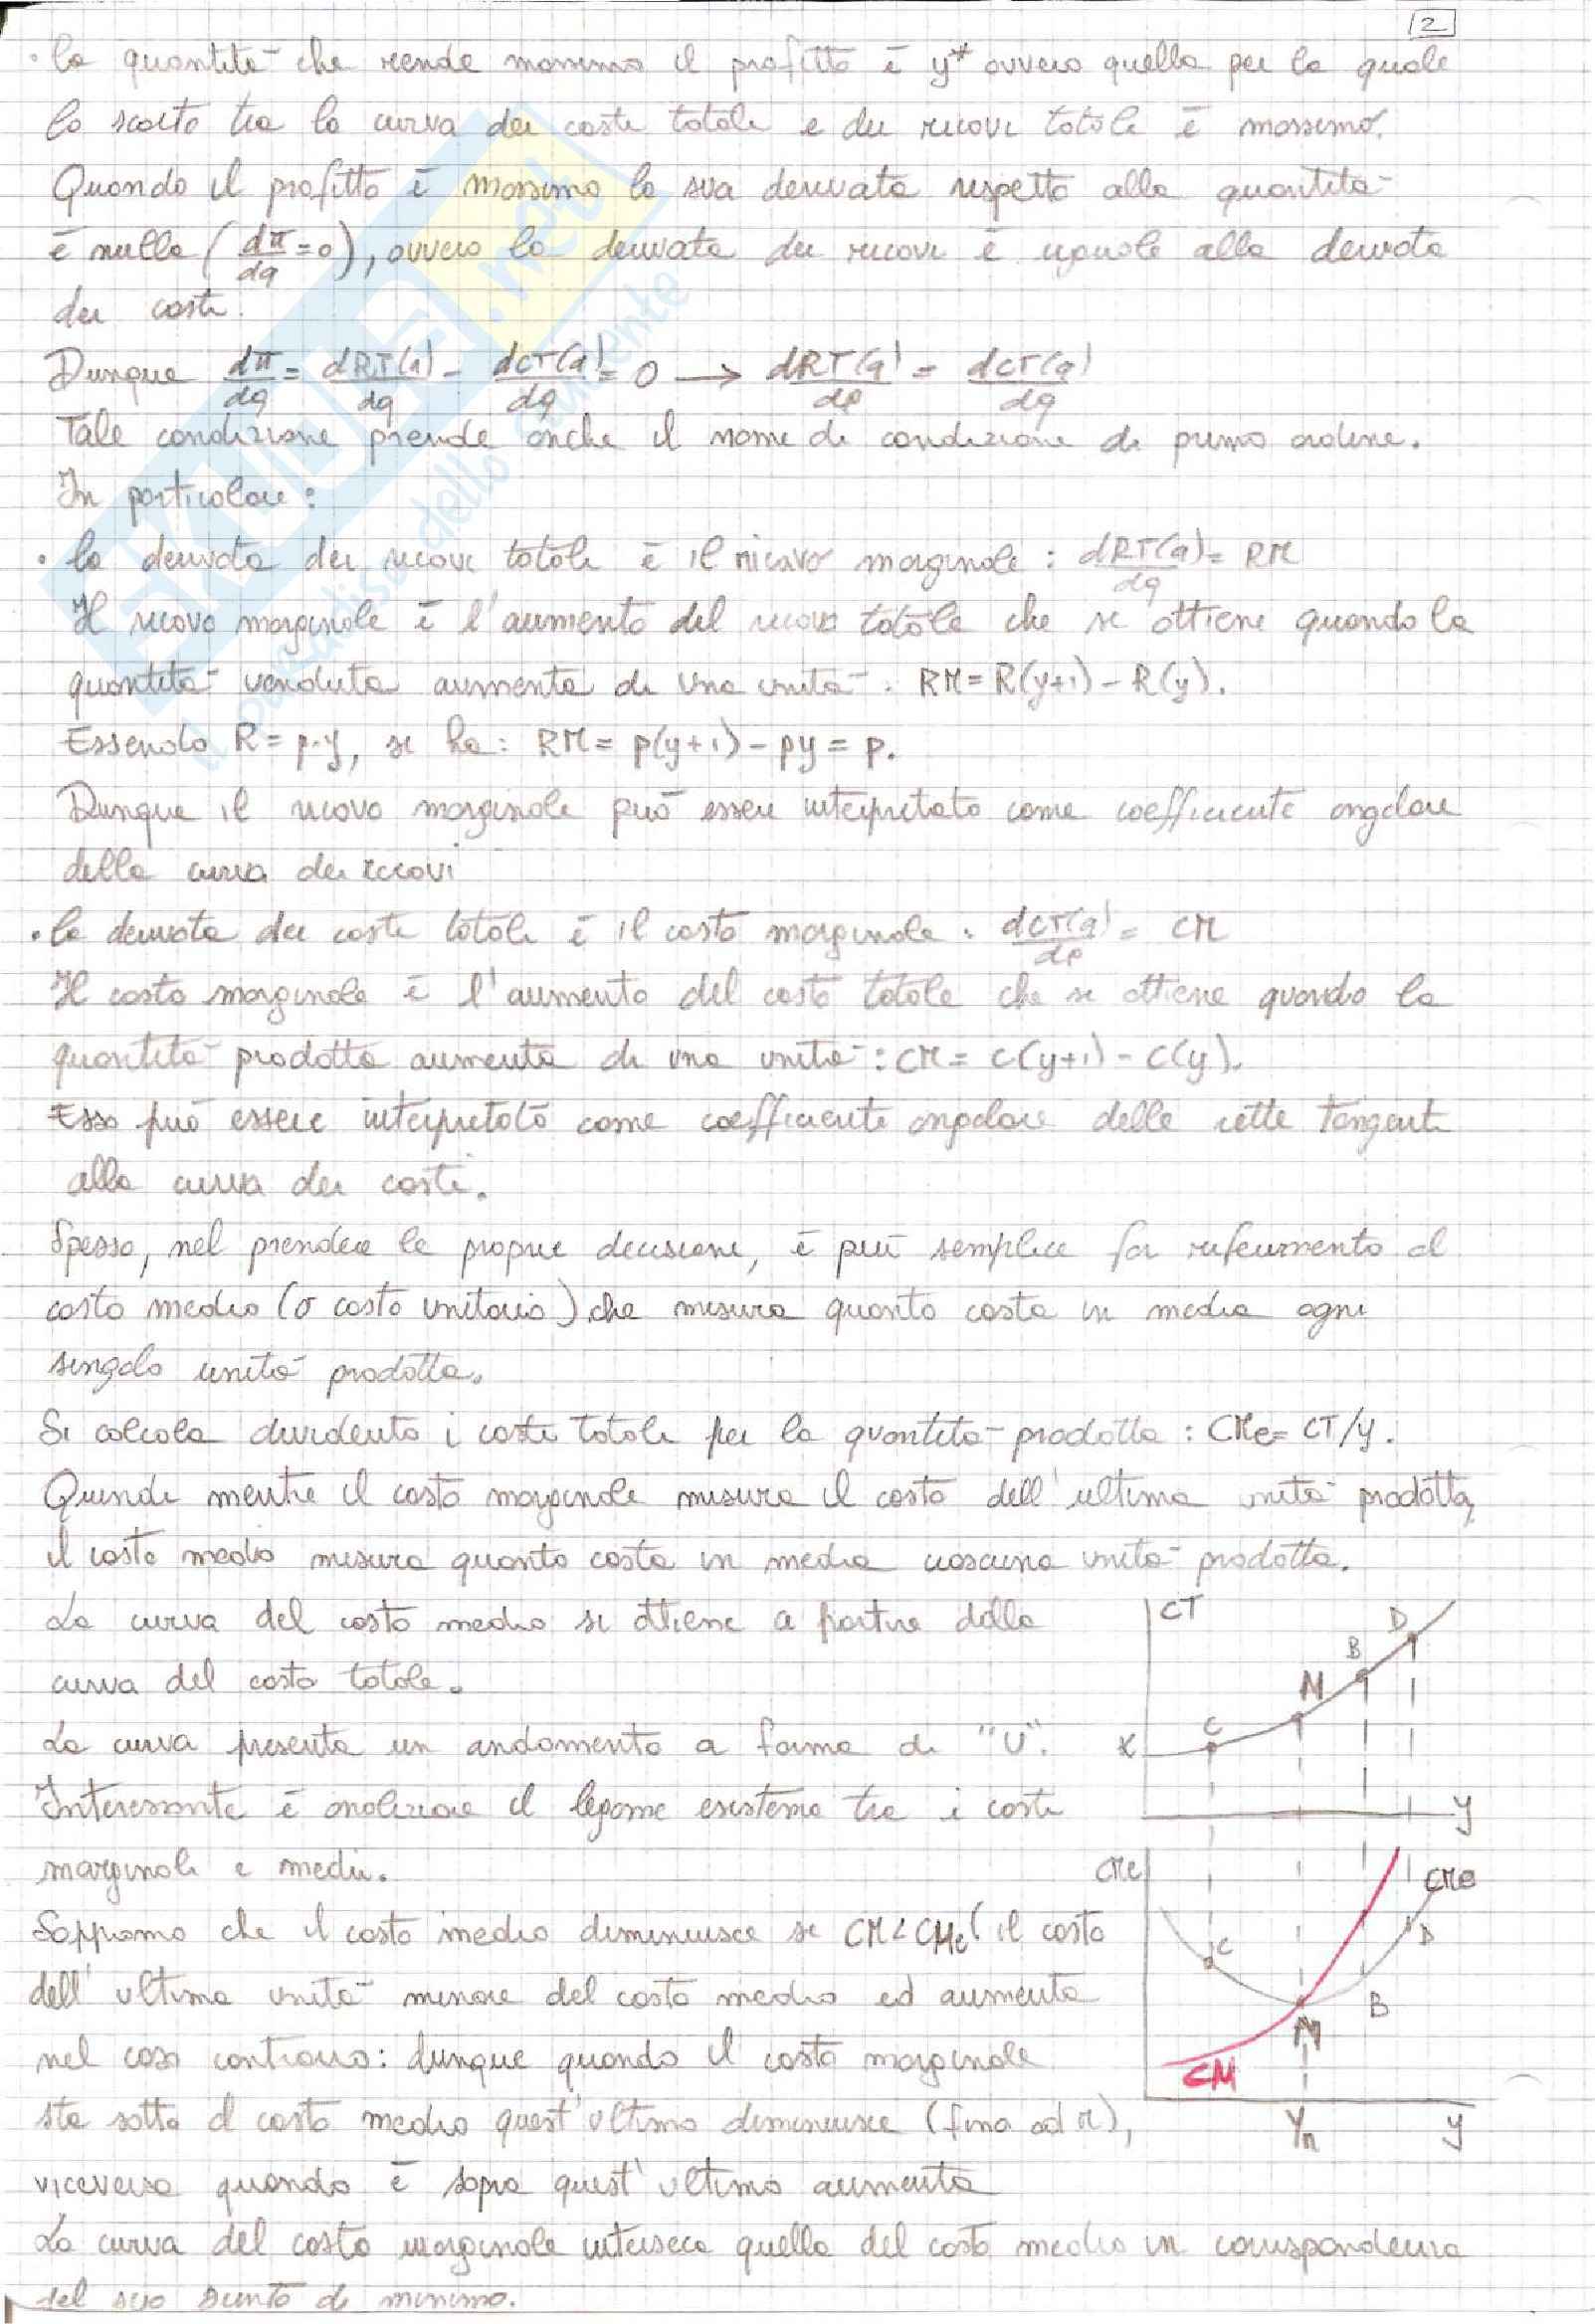 2
· la quantità che rende massimo il profitto è y* ovvero quella per la quale
lo scarto tra la curva dei costi totali e dei ricavi totali è massimo.
Quando il profitto è massimo la sua derivata rispetto alla quantità
è nulla (dπ/dq = 0), ovvero la derivata dei ricavi è uguale alla derivata
dei costi.
Dunque dπ/dq = dRT(q)/dq - dCT(q)/dq = 0 → dRT(q)/dq = dCT(q)/dq
Tale condizione prende anche il nome di condizione di primo ordine.
In particolare:
· la derivata dei ricavi totali è il ricavo marginale: dRT(q)/dq = RM
Il ricavo marginale è l'aumento del ricavo totale che si ottiene quando la
quantità venduta aumenta di una unità: RM = R(y+1) - R(y).
Essendo R = p·y, si ha: RM = p(y+1) - py = p.
Dunque il ricavo marginale può essere interpretato come coefficiente angolare
della curva dei ricavi
· la derivata dei costi totali è il costo marginale: dCT(q)/dq = CM
Il costo marginale è l'aumento del costo totale che si ottiene quando la
quantità prodotta aumenta di una unità: CM = C(y+1) - C(y).
Esso può essere interpretato come coefficiente angolare delle rette tangenti
alla curva dei costi.
Spesso, nel prendere le proprie decisioni, è più semplice far riferimento al
costo medio (o costo unitario) che misura quanto costa in media ogni
singola unità prodotta.
Si calcola dividendo i costi totali per la quantità prodotta: CMe = CT/y.
Quindi mentre il costo marginale misura il costo dell'ultima unità prodotta,
il costo medio misura quanto costa in media ciascuna unità prodotta.
La curva del costo medio si ottiene a partire dalla
curva del costo totale.
La curva presenta un andamento a forma di "U".
Interessante è analizzare il legame esistente tra i costi
marginali e medi.
Sappiamo che il costo medio diminuisce se CM<CMe (il costo
dell'ultima unità minore del costo medio ed aumenta
nel caso contrario: dunque quando il costo marginale
sta sotto il costo medio quest'ultimo diminuisce (fino ad M),
viceversa quando è sopra quest'ultimo aumenta
La curva del costo marginale interseca quella del costo medio in corrispondenza
del suo punto di minimo.
CT
D
B
M
C
K
y
CMe
CMe
C
D
B
M
CM
Yn
y
SKUOLA.net
il paradiso dello studente